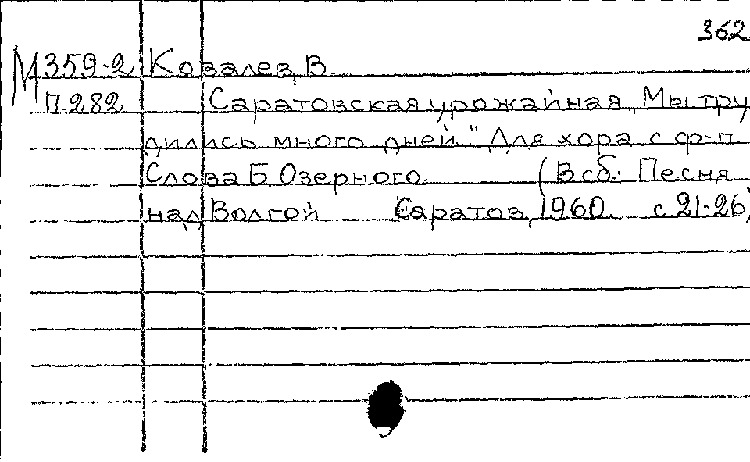 362
М 359-2 Ковалев, В.
П 282 Саратовская урожайная "Мы тру
дились много дней" Для хора с ф-п.
Слова Б. Озерного. (В сб.: Песня
над Волгой Саратов, 1960. с. 21-26)